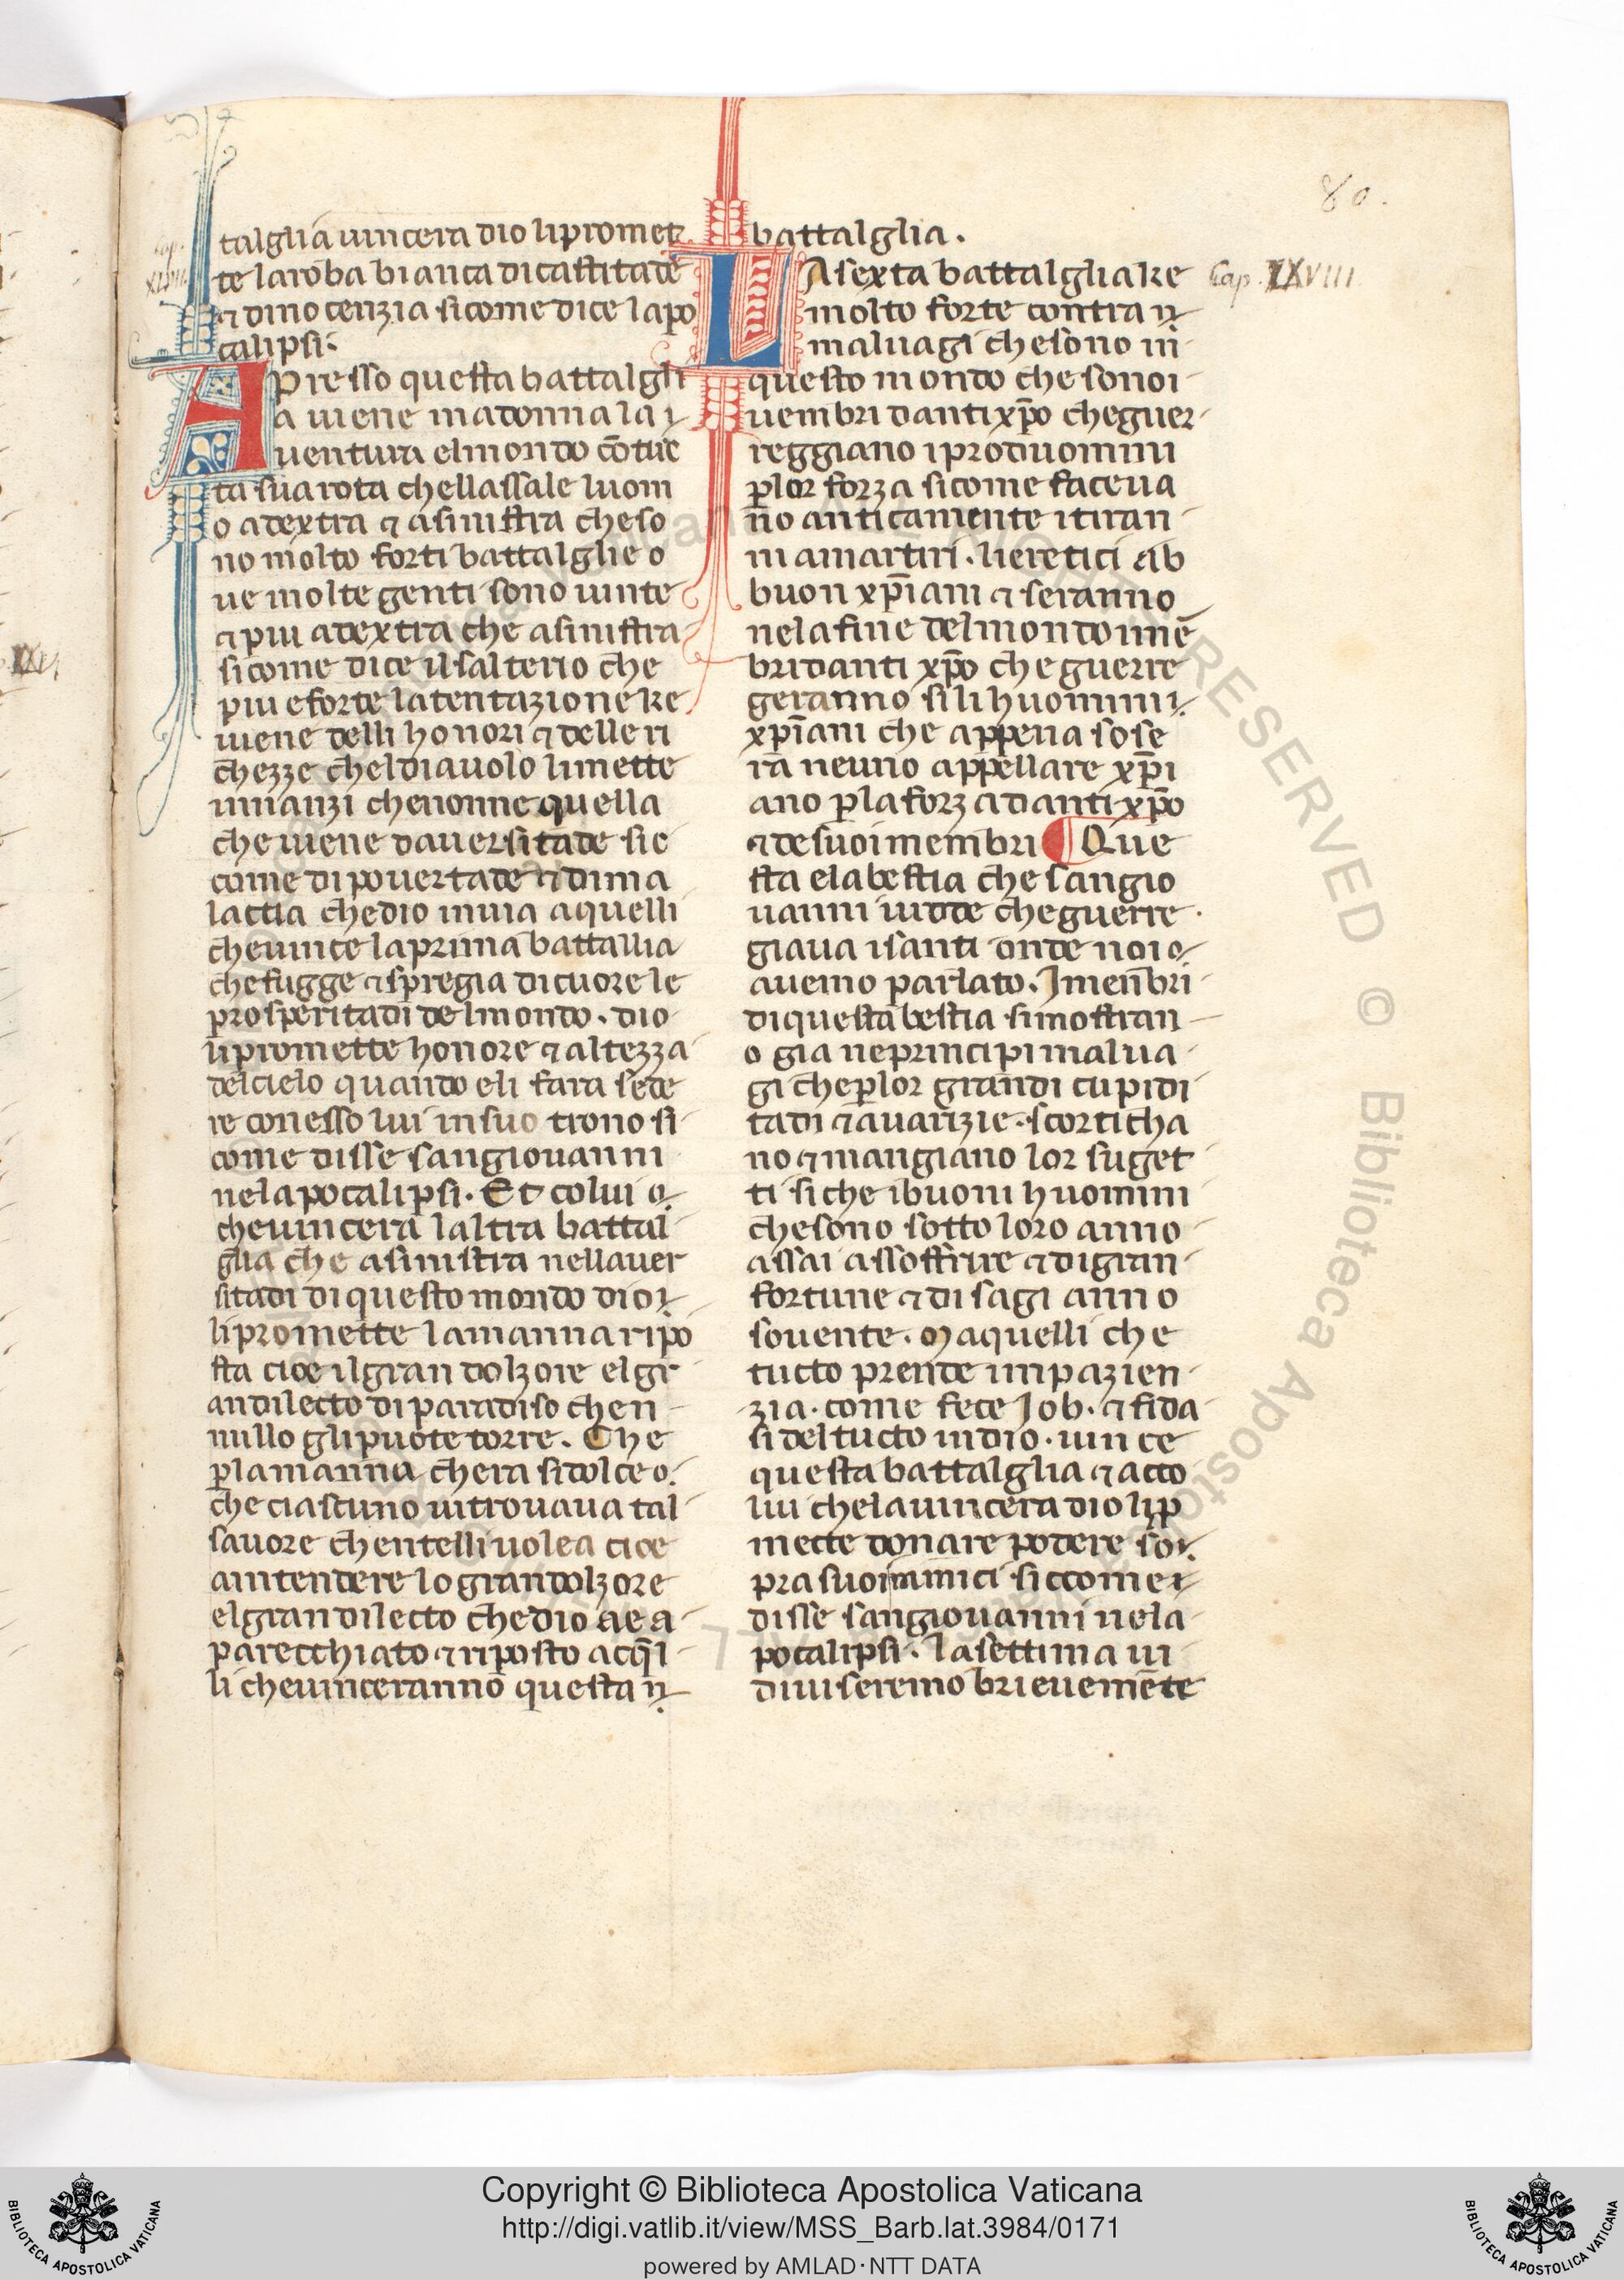 80.
talglia uincera dio li promet
te la roba bianca di castitade
⁊ dinocenzia si come dice lapo
calipsi.
Apresso questa battalgli
a uiene madonna la
uentura el mondo cōtut
ta sua rota chellassale luom
o a dextra ⁊ a sinistra che so
no molto forti battalglie o
ue molte genti sono uinte
⁊ piu a dextra che a sinistra
si come dice il salterio che
piu e forte la tentazione ke
uiene delli honori ⁊ delle ri
chezze chel diauolo li mette
innanzi che nonne quella
che uiene dauersitade sie
come di pouertade ⁊ di ma
lattia che dio inuia a quelli
che uince la prima battallia
che fugge ⁊ spregia di cuore le
prosperitadi del mondo. dio
li promette honore ⁊ altezza
del cielo quando eli fara sede
re con esso lui in suo trono si
come disse san giouanni
nel apocalipsi. Et colui
che uincera laltra battal
glia che a sinistra nell auer
sitadi di questo mondo dio
li promette la manna ripo
sta cioe il gran dolzore el gr
an dilecto di paradiso chen
nullo gli puote torre. Che
p̲ la manna chera si dolce
che ciascuno ui trouaua tal
sauore chentelli uolea cioe
a intendere lo gran dolzore
el gran dilecto che dio ae a
parecchiato ⁊ riposto a cq̄l
li che uinceranno questa
battalglia.
LA sexta battalglia ke
molto forte contra
maluagi che sono in
questo mondo che sono i
uembri danti xp̄o che guer
reggiano i produomini
p̲ lor forza si come faceua
no anticamente i tiran
ni a martiri. li eretici ab
buon xp̄iani ⁊ seranno
ne la fine del mondo i mē
bri danti xp̄o che guerre
geranno si li huomini
xp̄iani che appena so se
ra neuno appellare xp̄i
ano p̲ la forza danti xp̄o
⁊ de suoi membri ¶ Que
sta e la bestia che san gio
uanni uidde che guerre
giaua i santi onde noi
auemo parlato. J menbri
di questa bestia si mostran
o gia ne principi malua
gi che p̲ lor grandi cupidi
tadi ⁊ auarizie. scorticha
no ⁊ mangiano lor suget
ti si che i buoni huomini
che sono sotto loro anno
assai assoffrire ⁊ di gran
fortune ⁊ disagi anno
souente. Ma quelli che
tucto prende im pazien
zia. come fece Job. ⁊ fida
si del tucto in dio. uince
questa battalglia ⁊ acco
lui che la uincera dio li p
mette donare podere so
pra suoi inimici siccome
disse san giouanni ne la
pocalipsi. la settima ui
diuiseremo brieuemēte
Cap. XXVIII
Copyright © Biblioteca Apostolica Vaticana
http://digi.vatlib.it/view/MSS_Barb.lat.3984/0171
powered by AMLAD·NTT DATA
BIBLIOTECA APOSTOLICA VATICANA
BIBLIOTECA APOSTOLICA VATICANA